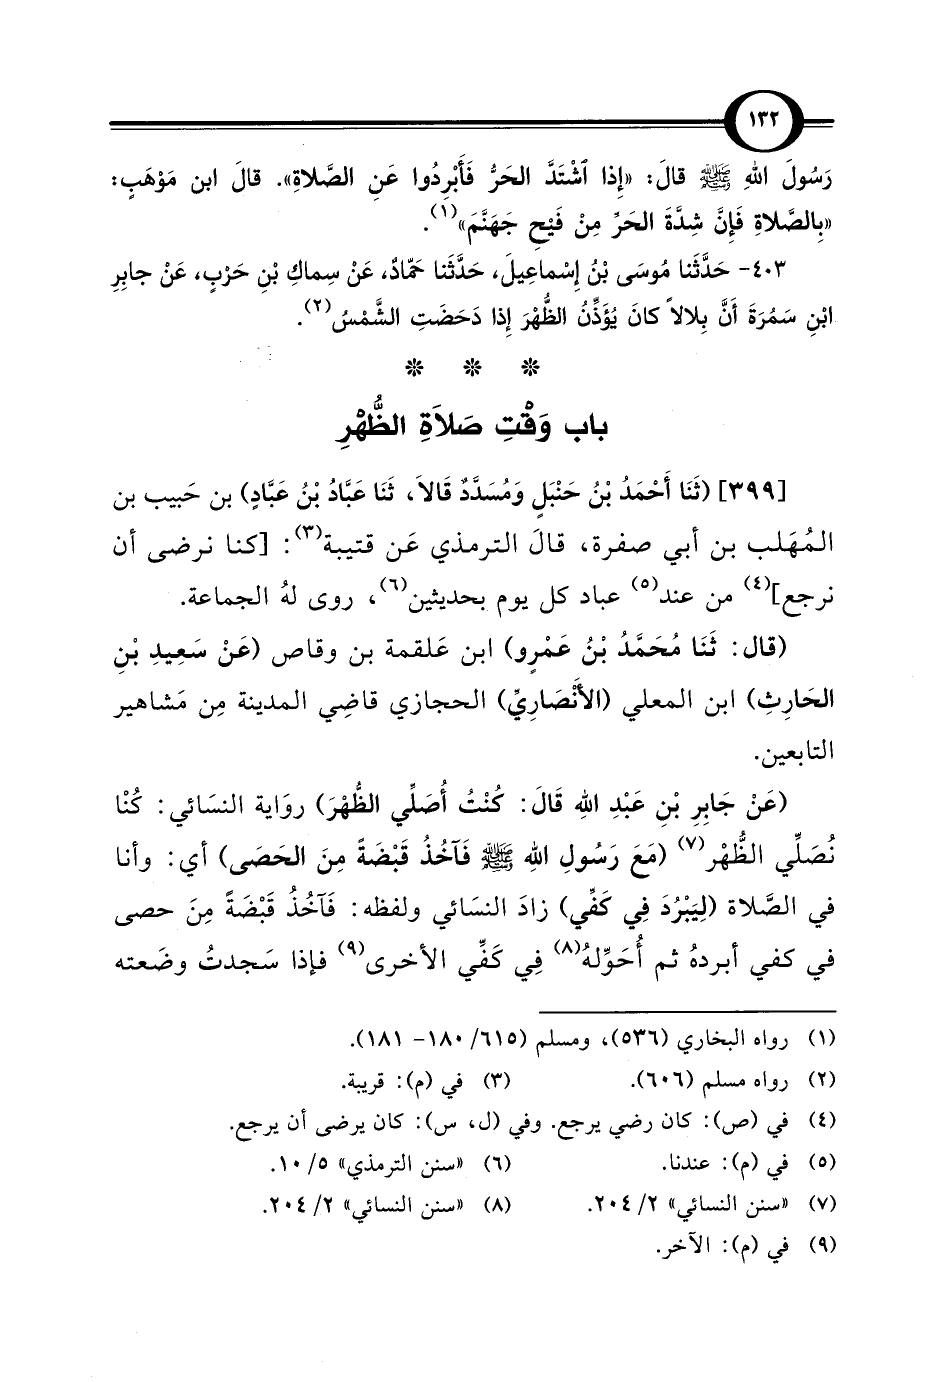 ١٣٢
رَسُولَ اللهِ ﷺ قالَ: «إِذا ٱشْتَدَّ الحَرُّ فَأَبْرِدُوا عَنِ الصَّلاةِ». قالَ ابن مَوْهَبٍ:
«بِالصَّلاةِ فَإِنَّ شِدَّةَ الحَرِّ مِنْ فَيْحِ جَهَنَّمَ»(١).
٤٠٣- حَدَّثَنا مُوسَى بْنُ إِسْماعِيلَ، حَدَّثَنا حَمّادٌ، عَنْ سِماكِ بْنِ حَرْبٍ، عَنْ جابِرِ
ابْنِ سَمُرَةَ أَنَّ بِلالاً كانَ يُؤَذِّنُ الظُّهْرَ إِذا دَحَضَتِ الشَّمْسُ(٢).
* * *
باب وَقْتِ صَلاَةِ الظُّهْرِ
[٣٩٩] (ثَنَا أَحْمَدُ بْنُ حَنْبَلٍ وَمُسَدَّدٌ قَالاَ، ثَنَا عَبَّادُ بْنُ عَبَّادٍ) بن حَبيب بن
المُهَلب بن أبي صفرة، قالَ الترمذي عَن قتيبة(٣): [كنا نرضى أن
نرجع](٤) من عند(٥) عباد كل يوم بحديثين(٦)، روى لهُ الجماعة.
(قال: ثَنَا مُحَمَّدُ بْنُ عَمْرٍو) ابن عَلقمة بن وقاص (عَنْ سَعِيدِ بْنِ
الحَارِثِ) ابن المعلي (الأَنْصَارِيِّ) الحجازي قاضِي المدينة مِن مَشاهير
التابعين.
(عَنْ جَابِرِ بْنِ عَبْدِ اللهِ قَالَ: كُنْتُ أُصَلِّي الظُّهْرَ) روَاية النسَائي: كُنْا
نُصَلِّي الظُّهْر(٧) (مَعَ رَسُولِ اللهِ ﷺ فَآخُذُ قَبْضَةً مِنَ الحَصَى) أي: وأنا
في الصَّلاة (لِيَبْرُدَ فِي كَفِّي) زادَ النسَائي ولفظه: فَآخُذُ قَبْضَةً مِنَ حصى
في كفي أبردهُ ثم أُحَوِّلهُ(٨) فِي كَفِّي الأخرى(٩) فإذا سَجدتُ وضَعته
(١) رواه البخاري (٥٣٦)، ومسلم (٦١٥/ ١٨٠- ١٨١).
(٢) رواه مسلم (٦٠٦). (٣) في (م): قريبة.
(٤) في (ص): كان رضي يرجع. وفي (ل، س): كان يرضى أن يرجع.
(٥) في (م): عندنا. (٦) «سنن الترمذي» ٥/ ١٠.
(٧) «سنن النسائي» ٢/ ٢٠٤. (٨) «سنن النسائي» ٢/ ٢٠٤.
(٩) في (م): الآخر.